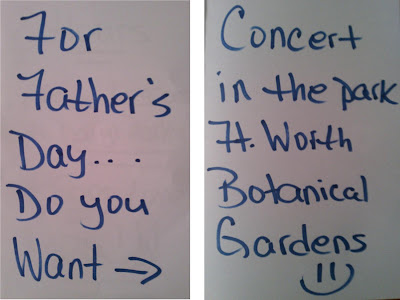 For
Father's
Day...
Do you
Want →
Concert
in the park
Ft. Worth
Botanical
Gardens